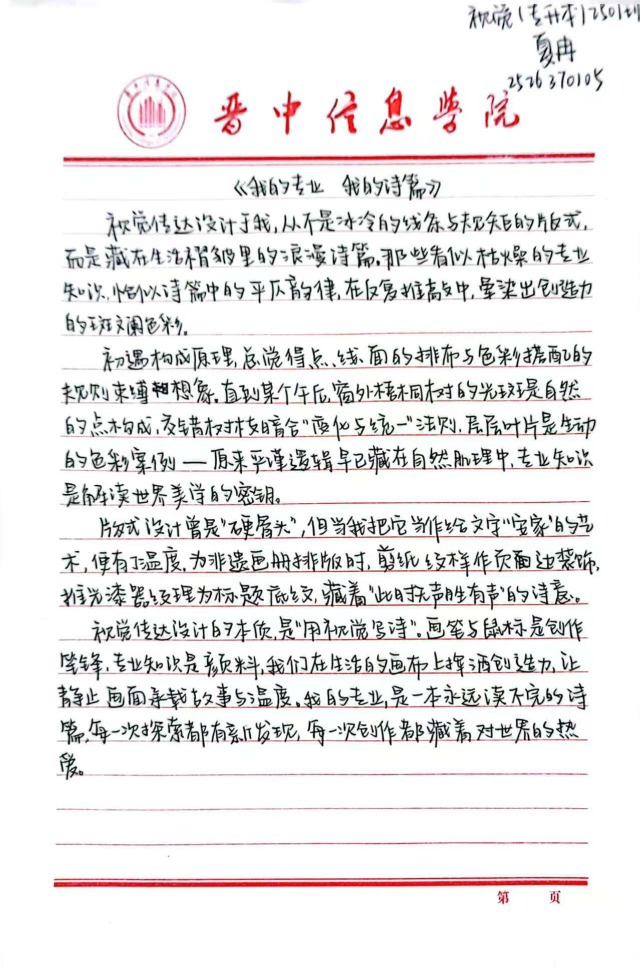 视觉(专升本)2501班
夏冉
2526370105
晋中信息学院
《我的专业 我的诗篇》
视觉传达设计于我,从不是冰冷的线条与规矩的版式,
而是藏在生活褶皱里的浪漫诗篇。那些看似枯燥的专业
知识,恰似诗篇中的平仄韵律,在反复推敲中,晕染出创造力
的斑斓色彩。
初遇构成原理,总觉得点、线、面的排布与色彩搭配的
规则束缚想象。直到某个午后,窗外梧桐树的光斑是自然
的点构成,交错树枝暗合"变化与统一"法则,层层叶片是生动
的色彩案例——原来严谨逻辑早已藏在自然肌理中,专业知识
是解读世界美学的密钥。
版式设计曾是"硬骨头",但当我把它当作给文字"安家"的艺
术,便有了温度。为非遗画册排版时,剪纸纹样作页面边装饰,
推光漆器纹理为标题底纹,藏着"此时无声胜有声"的诗意。
视觉传达设计的本质,是"用视觉写诗"。画笔与鼠标是创作
笔锋,专业知识是颜料,我们在生活的画布上挥洒创造力,让
静止画面承载故事与温度。我的专业,是一本永远读不完的诗
篇,每一次探索都有新发现,每一次创作都藏着对世界的热
爱。
第 页